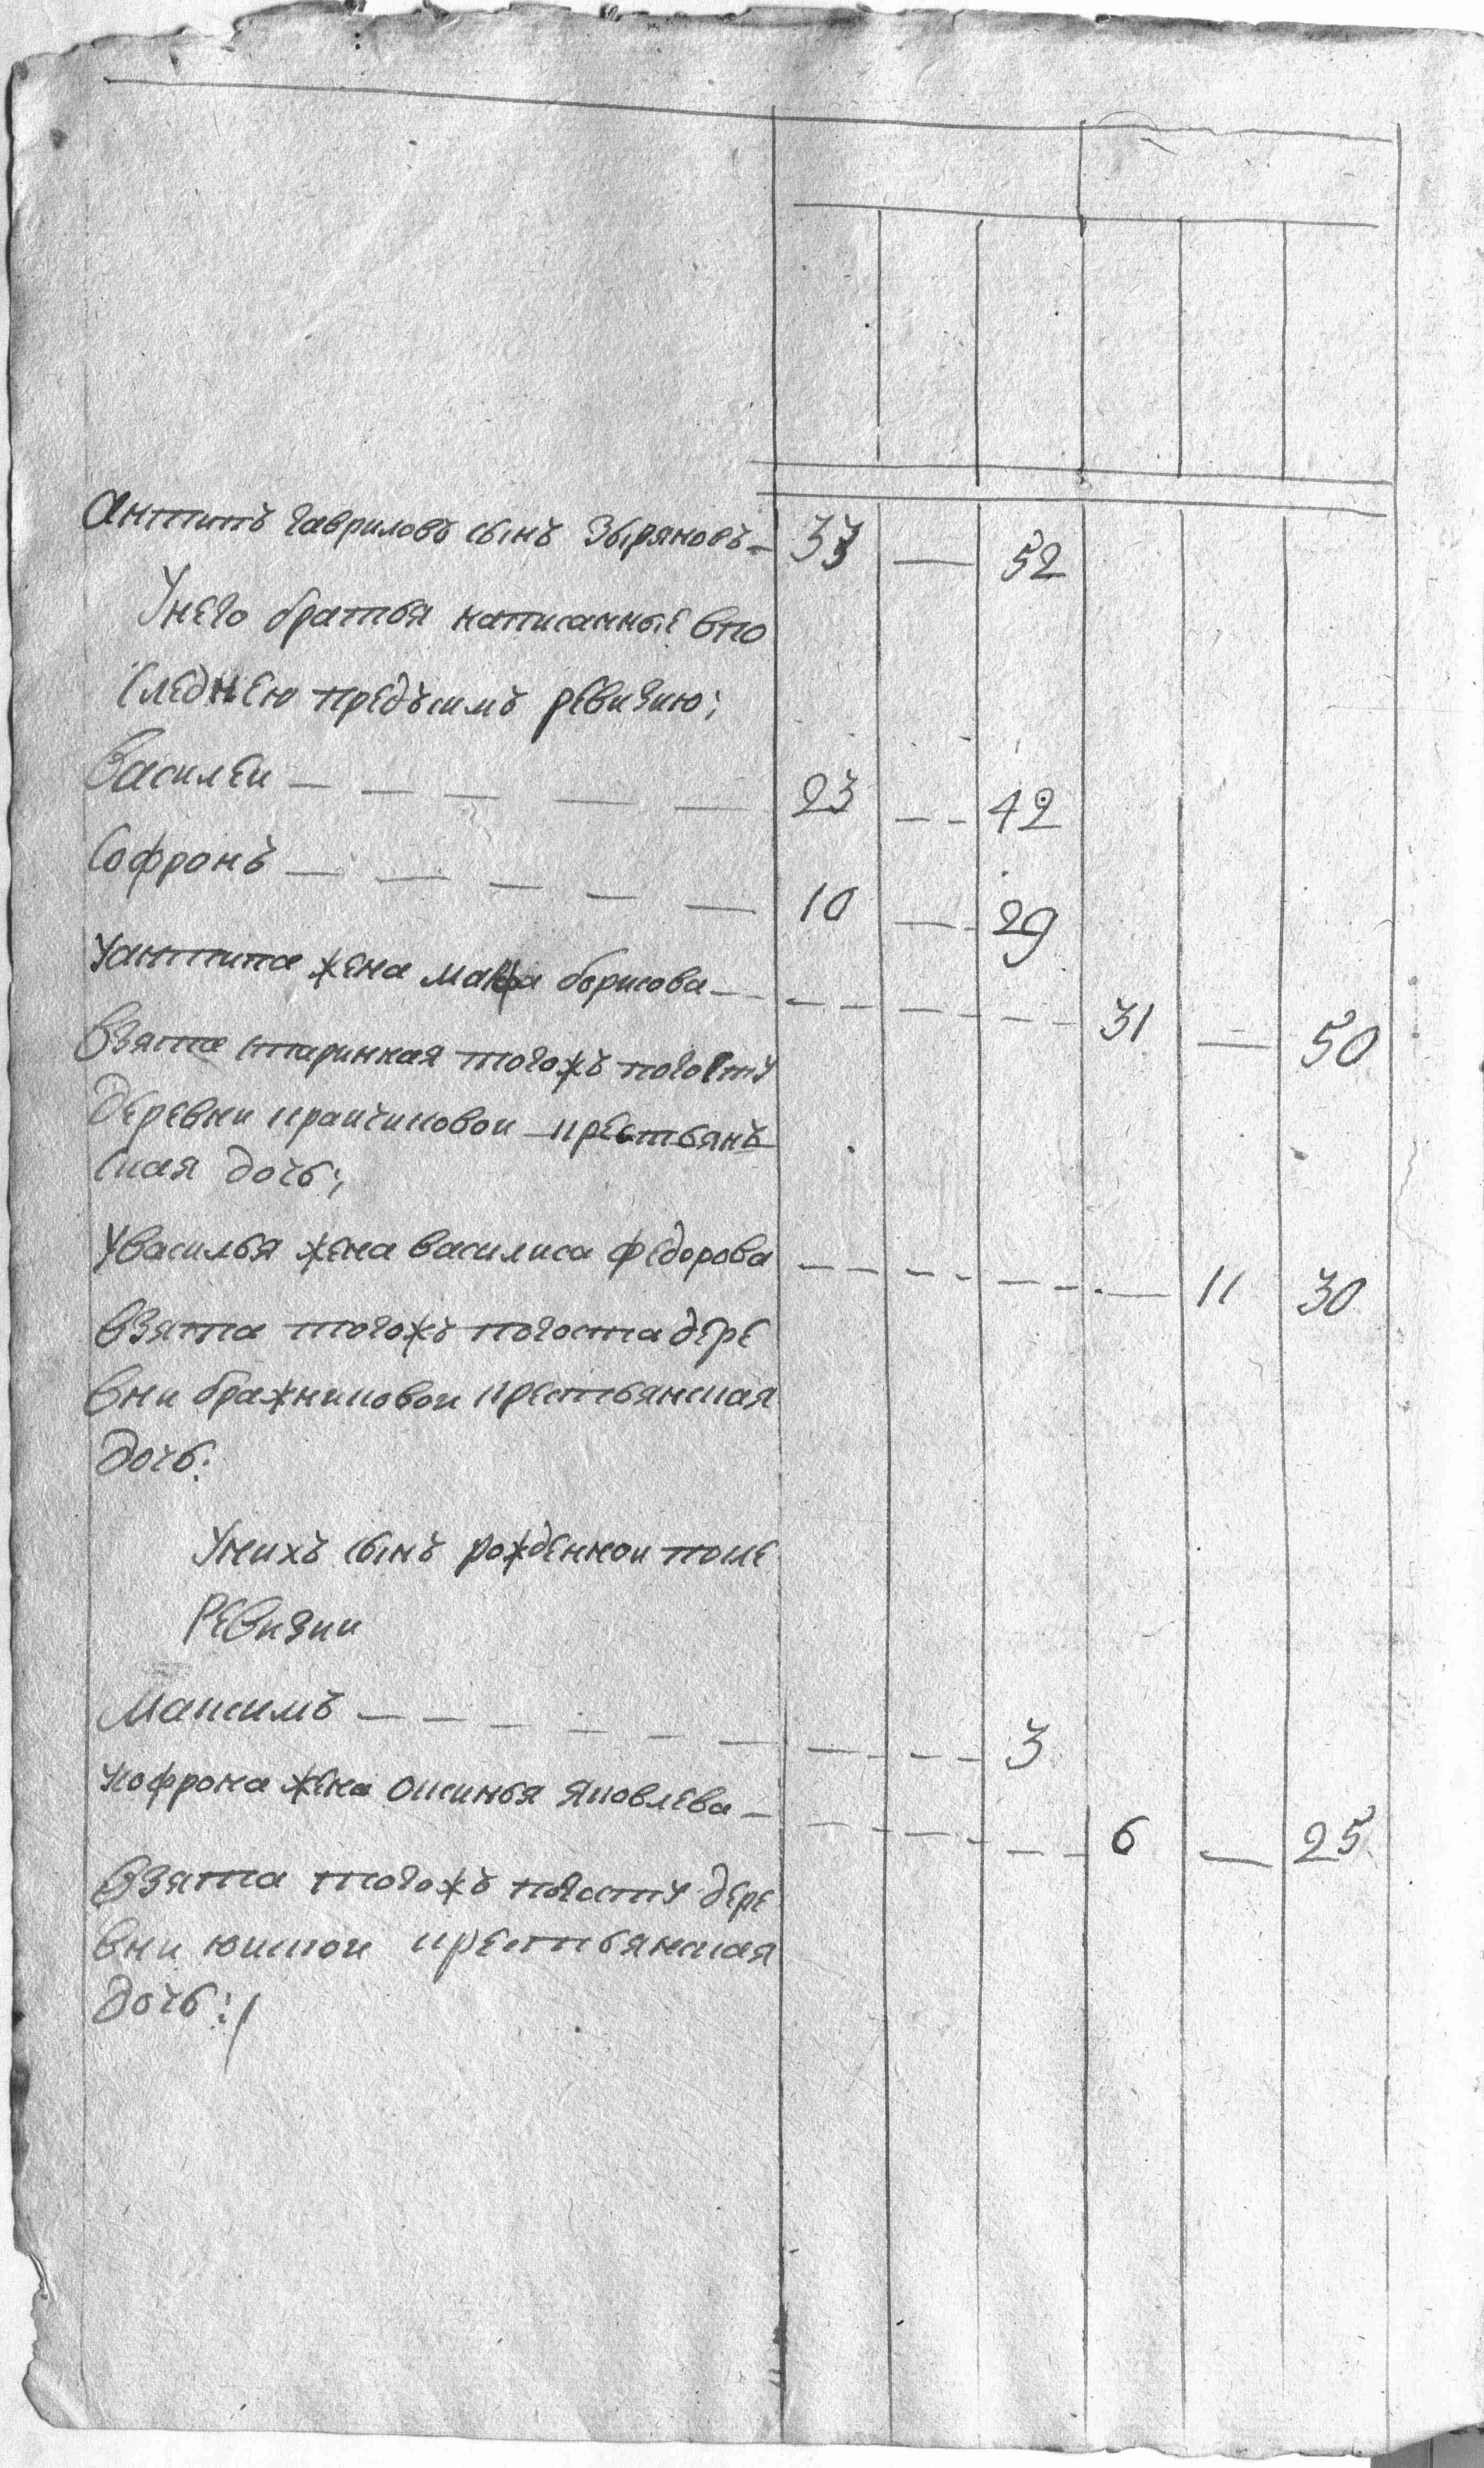 Антипъ Гавриловъ сынъ Зыряновъ — 33 — 52
У него братья написанные впо
следнею предъсимъ ревизию;
Василеи — — — — — 23 — — 42
Софронъ — — — — — 10 — — 29
Уантипа жена Макра борисова — — — — — 31 — 50
Взята старинная тогожъ погосту
деревни крайчиковои крестьянъ
ская дочь;
Увасилья жена василиса федорова — — — — — 11 30
Взята тогожъ погоста дере
вни бражниковои крестьянская
дочь:
Унихъ сынъ рожденнои после
Ревизии
Максимъ — — — — — — — — 3
Усофрона жена Оксинья Яковлева — — — — — — 6 — 25
Взята тогожъ погосту дере
вни крестьянская
дочь:/